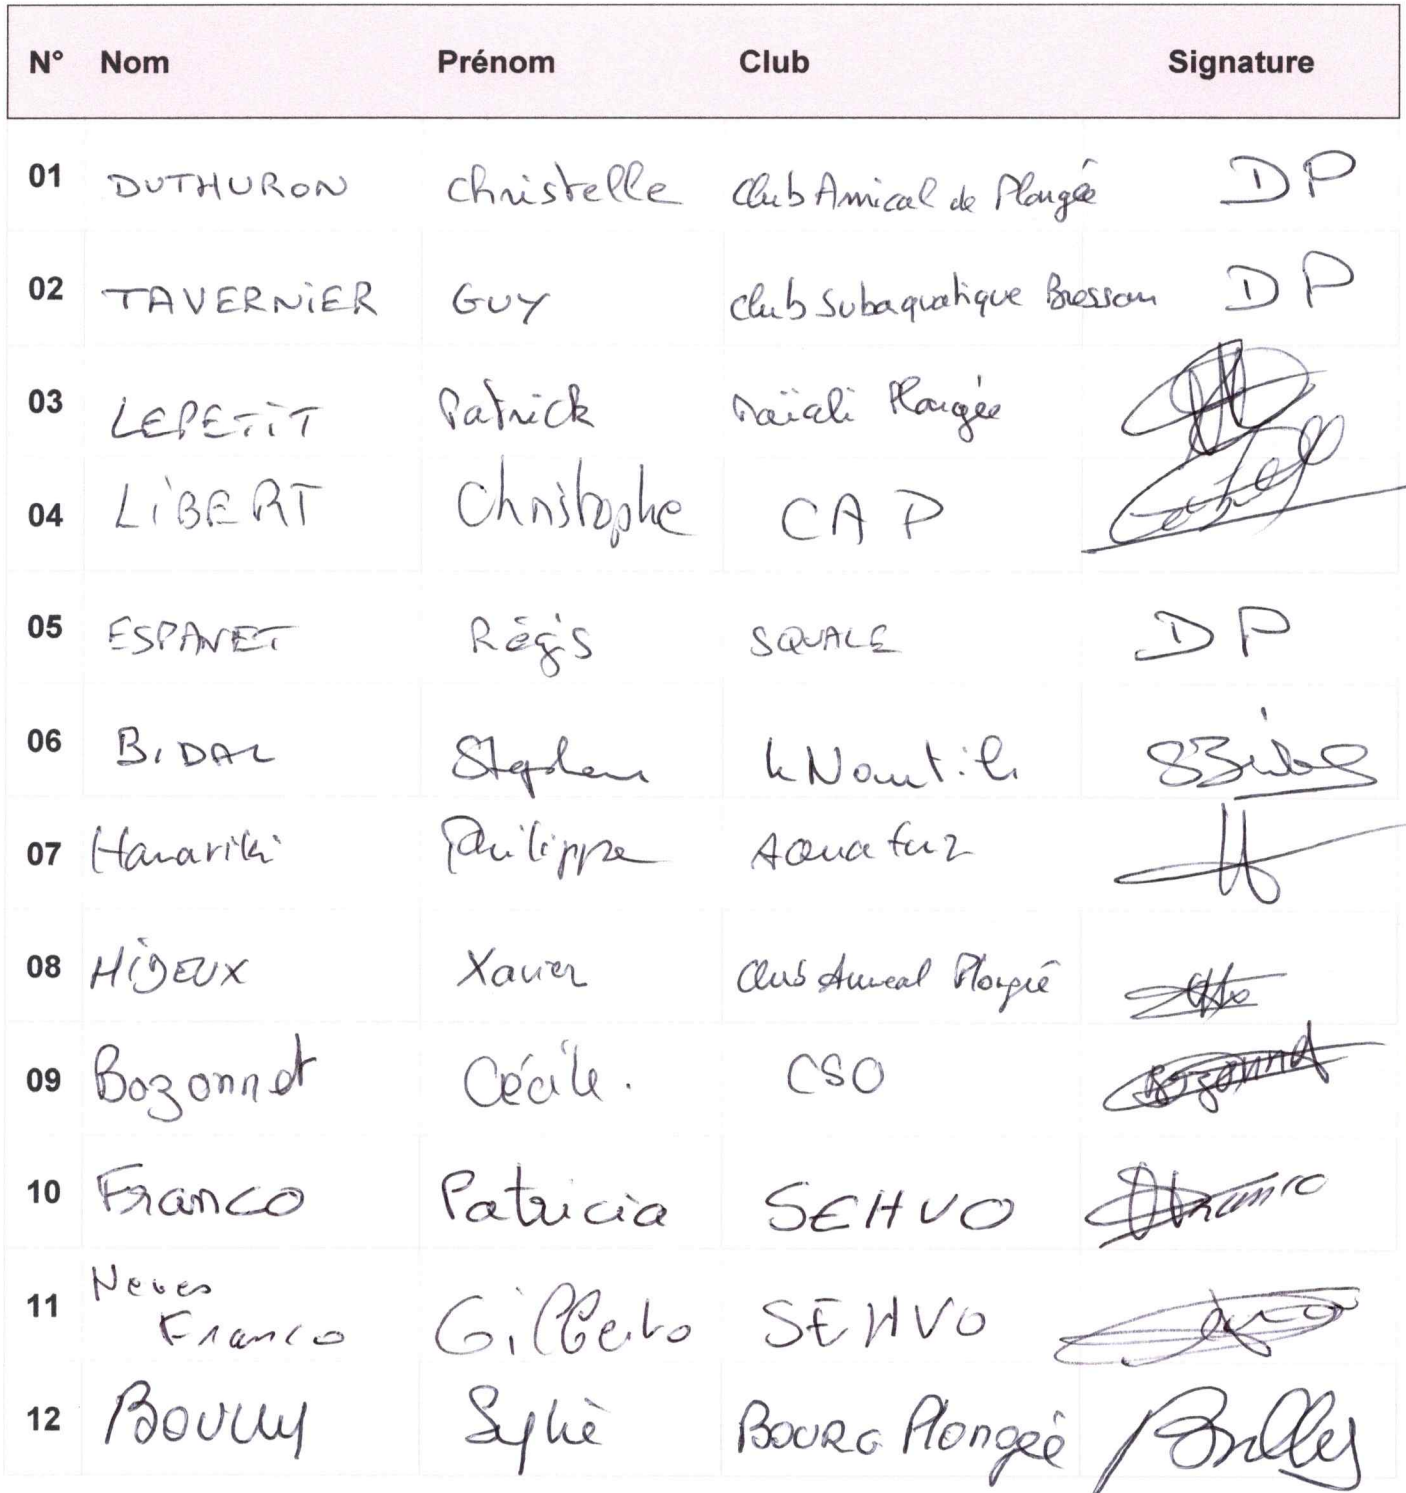 N° Nom Prénom Club Signature
01 DUTHURON Christelle Club Amical de Plongée DP
02 TAVERNIER GUY Club Subaquatique Bressan DP
03 LEPETIT Patrick Plongée
04 LIBERT Christophe CAP
05 ESPANET Régis SQUALE DP
06 BIDAL Stephane
07 Philippe
08 Xavier Club Amical Plongée
09 Bozonnet Cécile. CSO Bozonnet
10 Franco Patricia SEHVO Franco
11 Neves
Franco Gilberto SEHVO
12 BOULLY Sylvie BOURG Plongée Boully